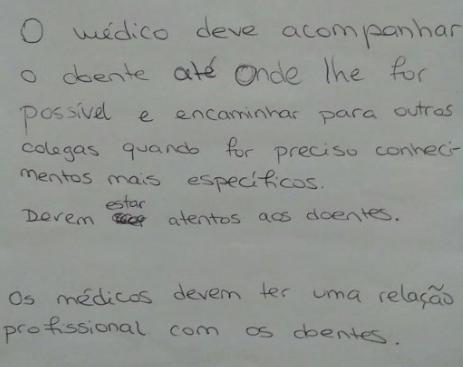 O médico deve acompanhar
o doente até onde lhe for
possível e encaminhar para outros
colegas quando for preciso conheci-
mentos mais específicos.
Devem estar atentos aos doentes.
Os médicos devem ter uma relação
profissional com os doentes.